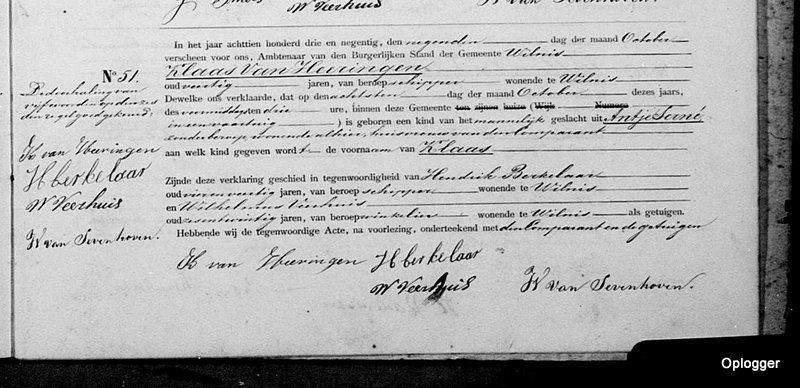 W Veerhuis
No. 51.
De doorhaling van
vijf woorden op dezen
den regel goedgekeurd,
K van Heeringen
H Berkelaar
W Veerhuis
W van Sevenhoven.
In het jaar achttien honderd drie en negentig, den negenden dag der maand October
verscheen voor ons, Ambtenaar van den Burgerlijken Stand der Gemeente Wilnis
Klaas Van Heeringen
oud veertig jaren, van beroep schipper wonende te Wilnis
Dewelke ons verklaarde, dat op den achtsten dag der maand October dezes jaars,
des voormiddags ten drie ure, binnen deze Gemeente ten zijnen huize (Wijk Numero
) is geboren een kind van het mannelijk geslacht uit Antje Terné,
zonder beroep, wonende alhier, huisvrouw van den Comparant
aan welk kind gegeven wordt de voornaam van Klaas
Zijnde deze verklaring geschied in tegenwoordigheid van Hendrik Berkelaar
oud vierenveertig jaren, van beroep schipper wonende te Wilnis
en Wilhelmus Veerhuis
oud zesentwintig jaren, van beroep winkelier wonende te Wilnis als getuigen.
Hebbende wij de tegenwoordige Acte, na voorlezing, onderteekend met den Comparant en de getuigen
K van Heeringen H Berkelaar
W Veerhuis W van Sevenhoven.
Oplogger